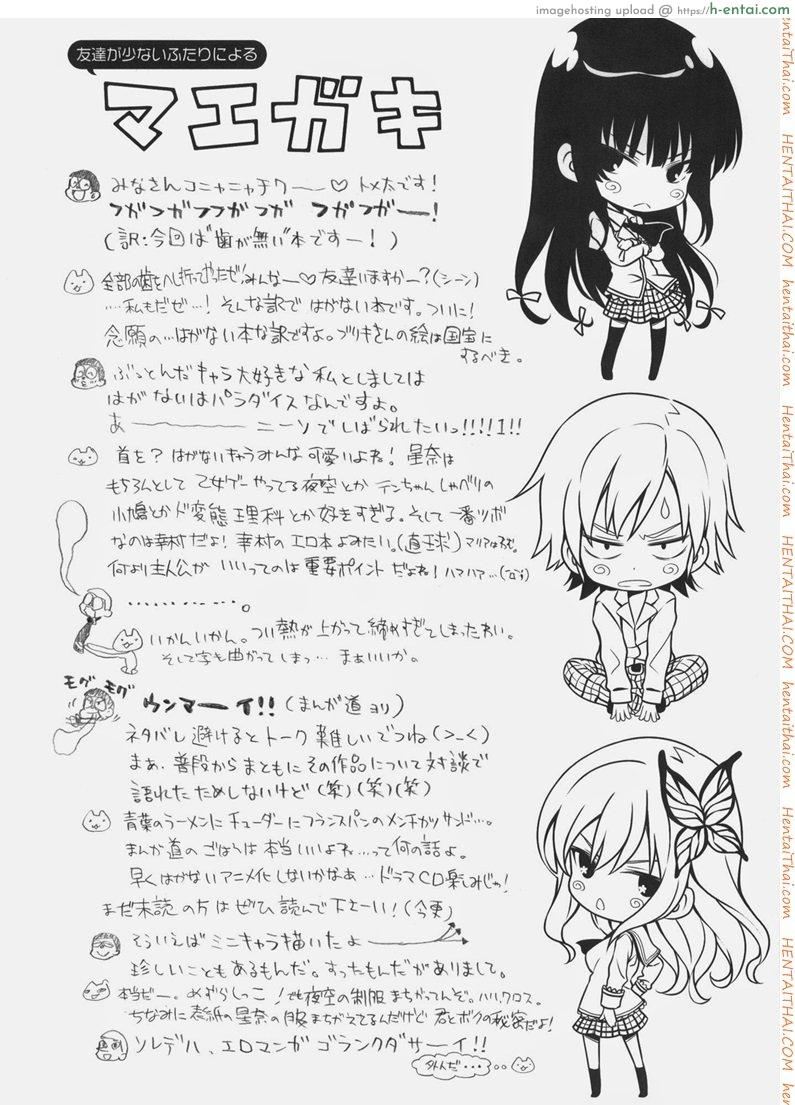 imagehosting upload @ https://h-entai.com
友達が少ないふたりによる
マエガキ
みなさんコニャニャチワー──♡ トメ太です!
フガフガフフガフガ フガフガー!
(訳:今回は"歯が無い"本ですー!)
全部の歯をへし折ってやったぜ!みんなー♡友達いますかー?(シーン)
…私もだぜ…! そんな訳で はがない本です。ついに!
念願の…はがない本な訳ですよ。ブリキさんの絵は国宝に
するべき。
ぶっとんだキャラ大好きな私としましては
はがないはパラダイスなんですよ。
あ──── ニーソでしばられたいっ!!!!1!!
首を? はがないキャラみんな可愛いよね! 星奈は
もちろんとして 乙女ゲーやってる夜空とか テンちゃんしゃべりの
小鳩とかド変態理科とか好きすぎる。そして一番ツボ
なのは幸村だよ! 幸村のエロ本よみたい。(直球)
何より主人公が いいってのは重要ポイントだよね! ハマハマ…
…………。
いかんいかん。つい熱が上がって締めすぎてしまったわい。
そして字も曲がってしまっ… まぁいいか。
モグ モグ
ウンマーイ!! (まんが道ヨリ)
ネタバレ避けるとトーク難しいでつね(>_<)
まぁ、普段からまともにその作品について対談で
語れたためしないけど(笑)(笑)(笑)
青葉のラーメンにチューダーにフランスパンのメンチカツサンド…。
まんが道のごはんは本当いいよね…って何の話よ。
早くはがないアニメ化しないかなぁ…ドラマCD楽しみじゃ!
まだ未読の方はぜひ読んで下さーい!(今更)
そういえばミニキャラ描いたよ
珍しいこともあるもんだ。すったもんだがありまして。
本当だー。めずらしっこ! でも夜空の制服まちがってんぞ。ハリ.クロス。
ちなみに表紙の星奈の服まちがえてるんだけど君とボクの秘密だよ!
ソレデハ、エロマンガ ゴランクダサーイ!!
外んだ…
HENTAITHAI.COM
HentaiThai.com
hentaithai.com
HENTAITHAI.COM
HentaiThai.com
hentaithai.com
HENTAITHAI.COM
HentaiThai.com
HENTAITHAI.COM